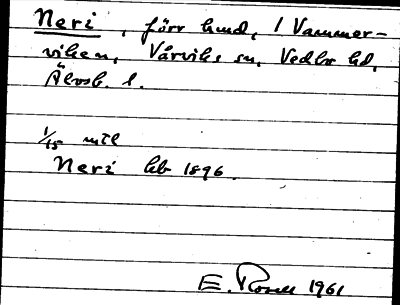 Neri, förr hmd, 1 Vammer-
viken, Vårviks sn, Vedbo hd,
Älvsb. l.
1/15 mtl
Neri hb 1896.
E. Rosell 1961